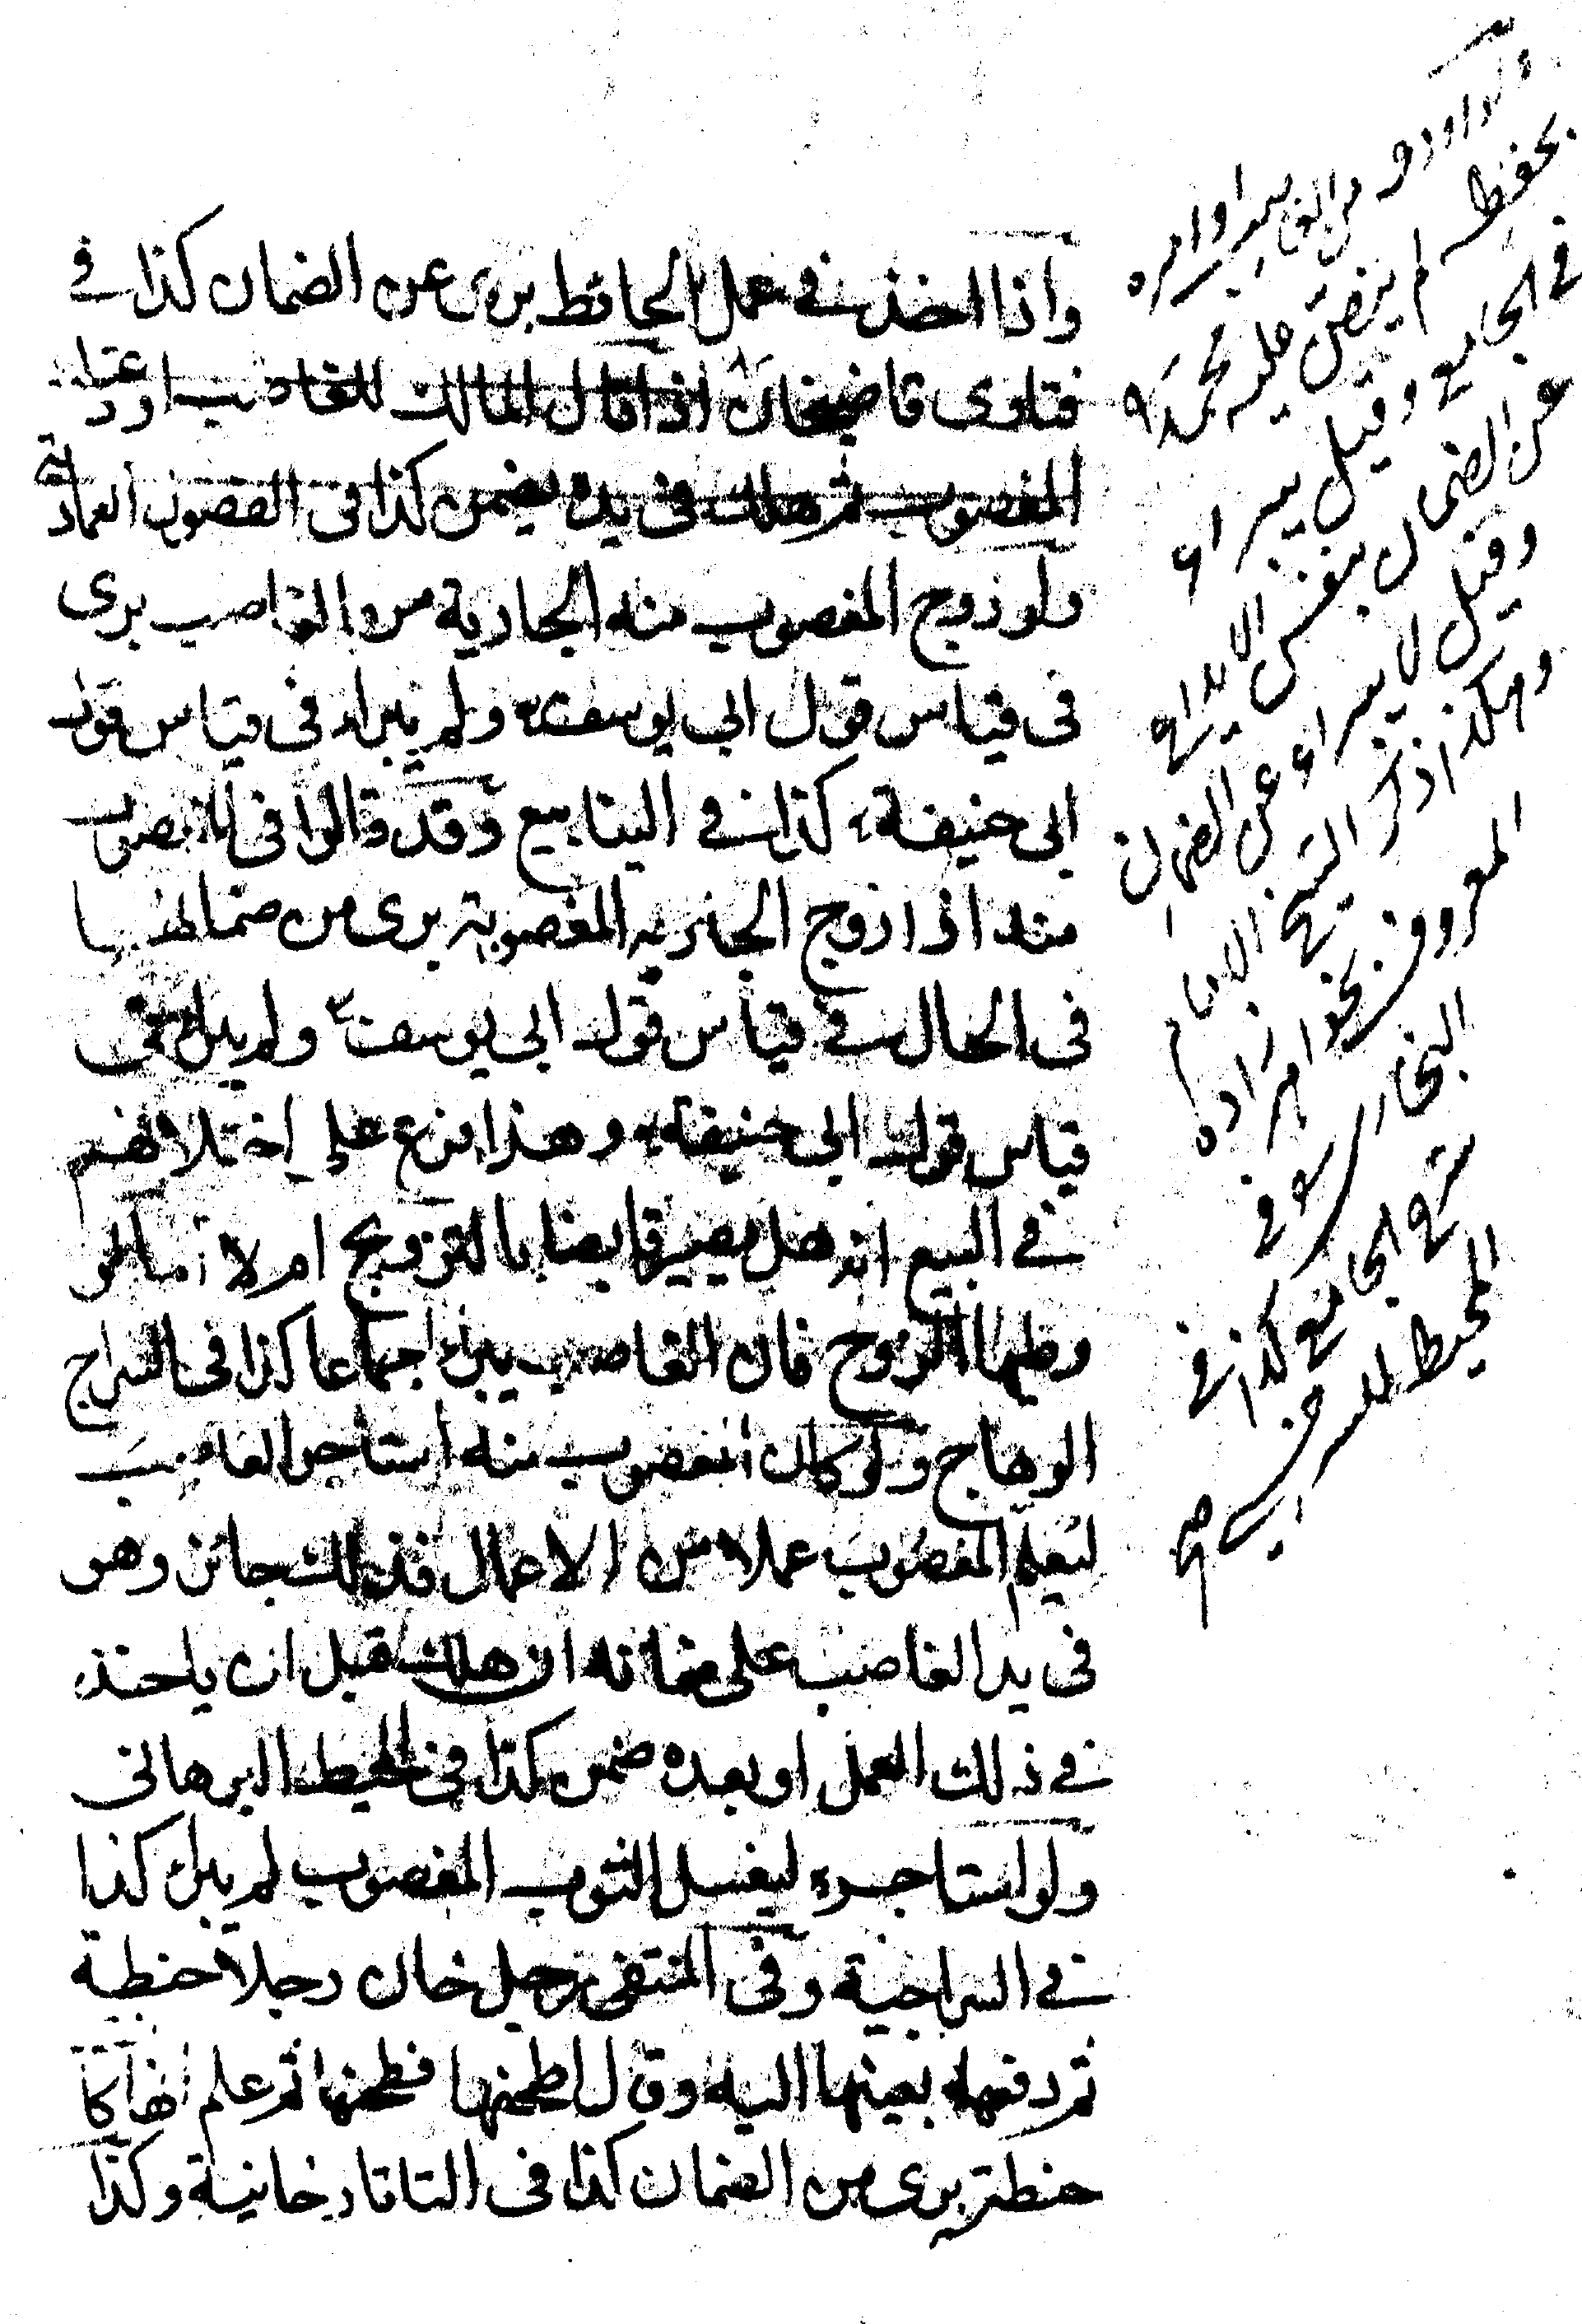 واذا اخذ في عمل الحائط برئ عن الضمان كذا في
فتاوى قاضيخان اذا قال المالك للغاصب اودعتك
المغصوب ثم هلك في يده يضمن كذا في الفصول العمادية
ولو زوج المغصوب منه الجارية من الغاصب برى
في قياس قول ابي يوسف ولم يبرا في قياس قول
ابي حنيفة كذا في الينابيع وقد قالوا في المغصوب
منه اذا زوج الجارية المغصوبة برى من ضمانها
في الحال في قياس قول ابي يوسف ولم يبرا في
قياس قول ابي حنيفة وهذا فرع على اختلافهم
في البيع انه هل يصير قابضا بالتزويج ام لا اما لو
وطيها الزوج فان الغاصب يبرا اجماعا كذا في السراج
الوهاج ولو كان المغصوب منه استاجر الغاصب
ليعلم المغصوب عملا من الاعمال فذلك جائز وهو
في يد الغاصب على ضمانه ان هلك قبل ان ياخذ
في ذلك العمل او بعده ضمن كذا في المحيط البرهانى
ولو استاجره ليغسل الثوب المغصوب لم يبرا كذا
في السراجية وفي المنتقى رجل خان رجلا حنطة
ثم دفعها بعينها اليه وقال اطحنها فطحنها ثم علم انها كا
حنطته برى من الضمان كذا في التاتارخانية وكذا
من الغاصب او امره
بحفظه لم ينص عليه محمد
في الجامع وقيل يبراء
عن الضمان بنفس الايداع
وقيل لا يبراء عن الضمان
وهكذا ذكر الشيخ الامام
المعروف بخواهر زاده
البخاري في
شرح الجامع كذا في
المحيط للسرخسي